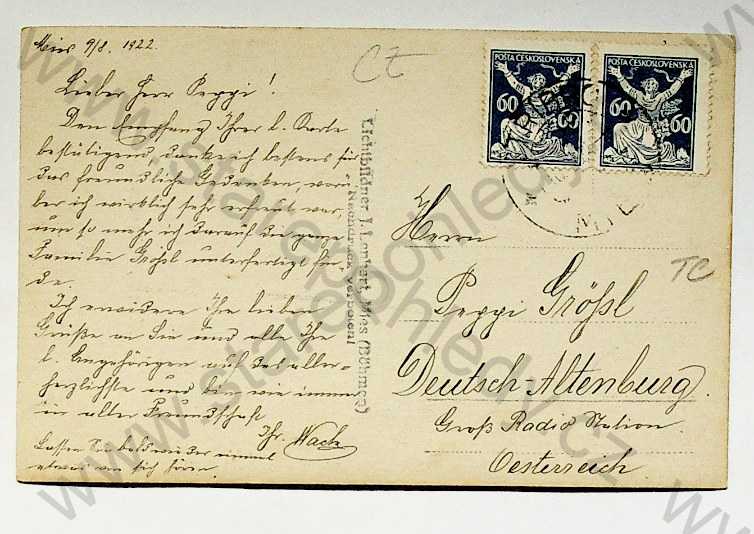 Mies 9/8. 1922.
Lieber Herr Peppi!
Den Empfang Ihrer l. Karte
bestätigend, danke ich bestens für
das freundliche Gedenken, worü-
ber ich wirklich sehr erfreut war,
um so mehr ich darauf die ganze
Familie Größl unterfertigt fin-
de.
Ich erwidere Ihre lieben
Grüße an Sie und alle Ihre
l. Angehörigen auf das aller-
herzlichste und bin wie immer
in alter Freundschaft
Ihr. Wach
Lassen Sie bald wieder einmal
etwas von sich hören.
CZ
Lichtbildner J. Lenhart, Mies (Böhmen)
Nachdruck verboten!
POŠTA ČESKOSLOVENSKÁ
60 60
POŠTA ČESKOSLOVENSKÁ
60 60
Herrn
TC
Peppi Größl
Deutsch-Altenburg.
Groß Radio Station.
Oesterreich
www.starepohledy.cz